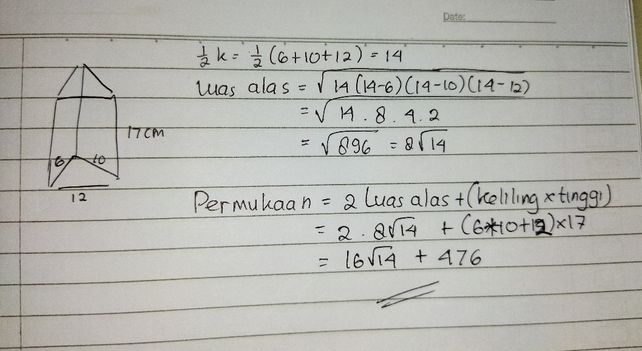 Date:
½ k = ½ (6+10+12) = 14
Luas alas = √14(14-6)(14-10)(14-12)
= √14 . 8 . 4 . 2
= √896 = 8√14
17 cm
6 10
12
Permukaan = 2 Luas alas + (keliling x tinggi)
= 2 . 8√14 + (6+10+12)x17
= 16√14 + 476